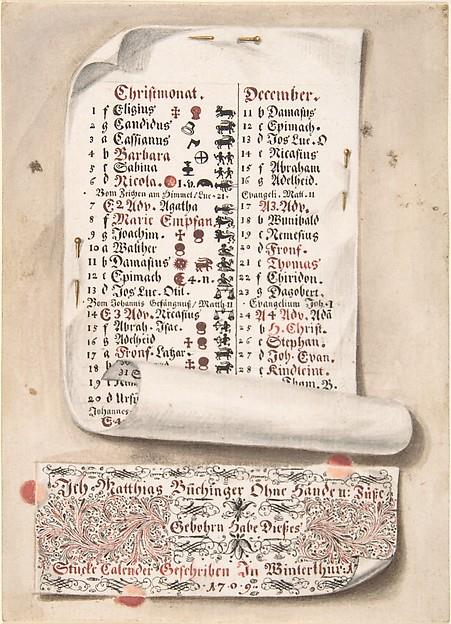 Christmonat.
1 f Eligius
2 g Candidus
3 a Cassianus
4 b Barbara
5 c Sabina
6 d Nicola. 1. v.
Vom Zeichen am Himmel/Luc. 21.
7 E2 Adv. Agatha
8 f Marie Empfan.
9 g Joachim.
10 a Walther
11 b Damasius
12 c Epimach 4. n.
13 d Jos Luc. Otil.
Vom Johannis Gefängnuß/Matth. 11
14 E3 Adv. Nicasius
15 f Abrah. Isac.
16 g Adelheid
17 a Fronf. Lazar.
18 b
19
20 d Ursi
Johannes
December.
11 b Damasius
12 c Epimach.
13 d Jos Luc. O
14 e Nicasius
15 f Abraham
16 g Adelheid.
Evangeli. Mat. 11
17 A3. Adv.
18 b Wunibald
19 c Nemesius
20 d Fronf.
21 e Thomas
22 f Chiridon.
23 g Dagobert.
Evangelium Joh. 1
24 A4 Adv. Ada
25 b H. Christ.
26 c Stephan.
27 d Joh. Evan.
28 e Kindleint.
Tham. B.
31 S
Ich Matthias Büchinger Ohne Händ u: Füße
Gebohrn Habe Dießes
Stuckt Calender Geschriben In Winterthur. A
1709